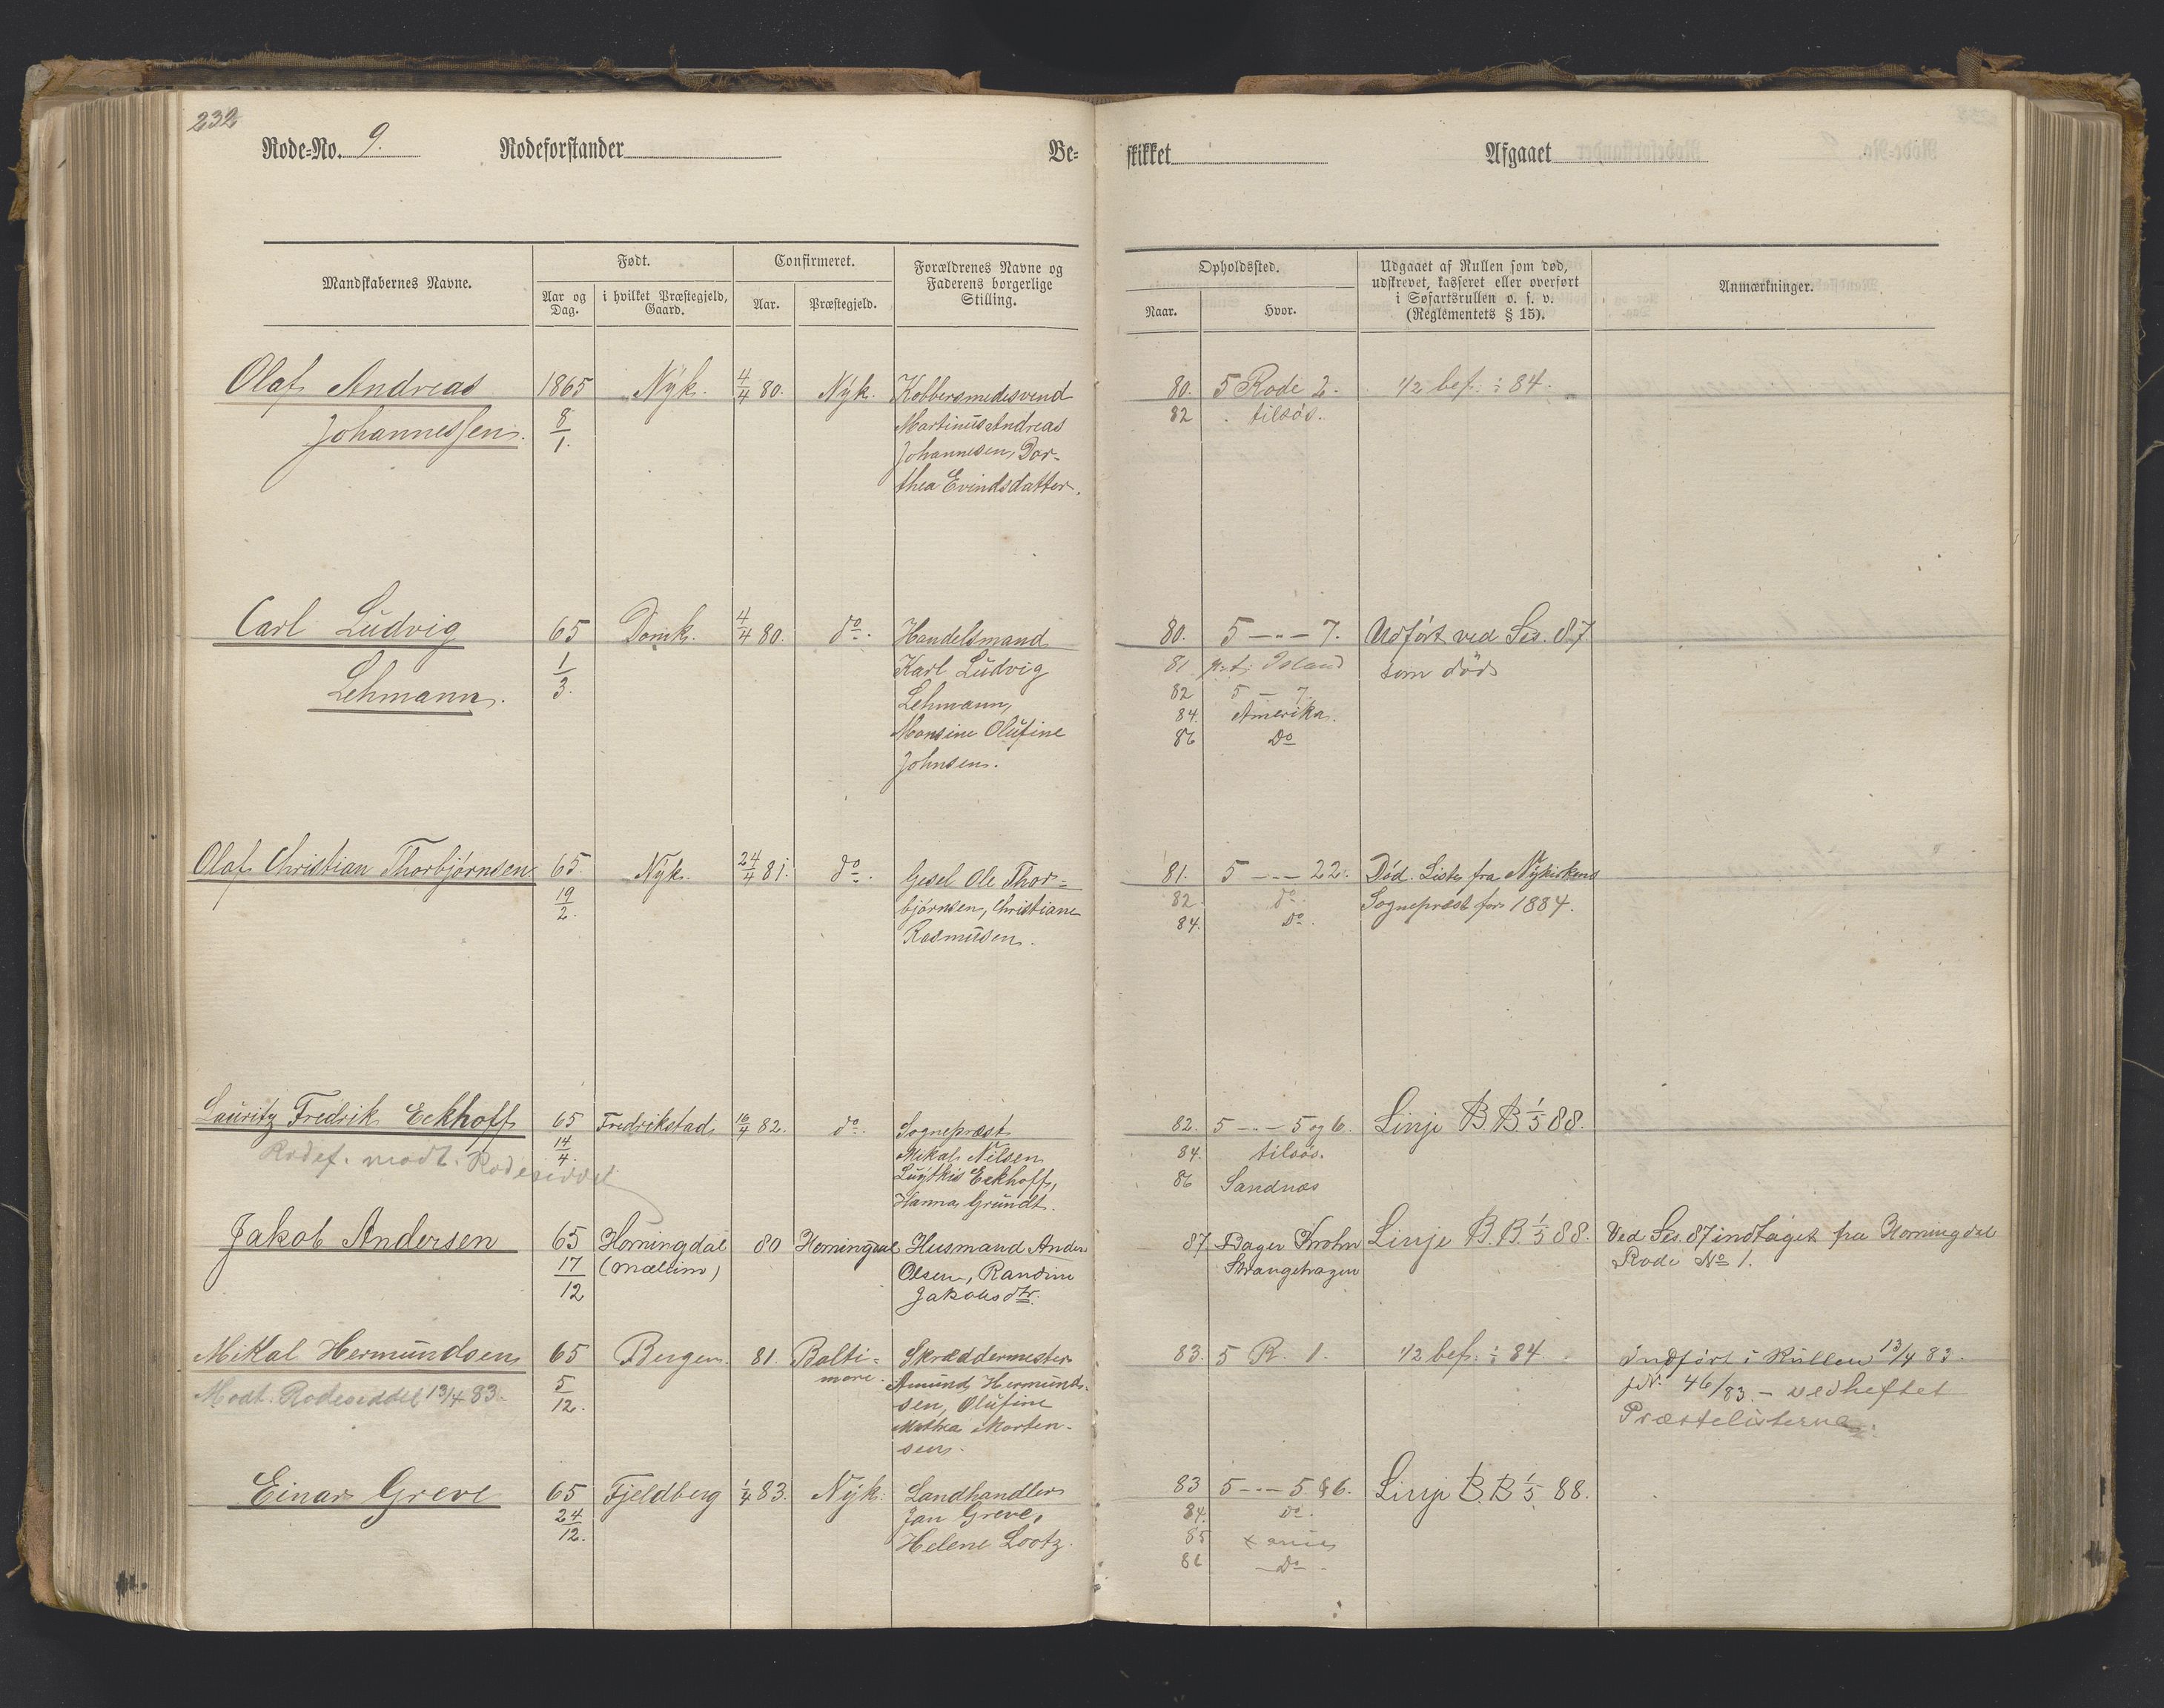 232
Rode=No. 9. Rodeforstander Be= skikket Afgaaet
Mandskabernes Navne. Født. Confirmeret. Forældrenes Navne og Faderens borgerlige Stilling. Opholdssted. Udgaaet af Rullen som død, udskrevet, kasseret eller overført i Søfartsrullen o. s. v. (Reglementets § 15). Anmærkninger.
Aar og Dag. i hvilket Præstegjeld, Gaard. Aar. Præstegjeld. Naar. Hvor.
Olaf Andreas 1865 Nyk. 4/4 80. Nyk. Kobbersmedesvend 80. 5 Rode 2. 1/2 bef. 84.
Johannessen. 8/1. Martinus Andreas 82 tilsøs.
Johannesen, Dor-
thea Evindsdatter.
Carl Ludvig 65 Domk. 4/4 80. do. Handelsmand 80. 5 -"- 7. Udført ved Ses. 87
Lehmann. 1/3. Karl Ludvig 81 p. t. Island som død
Lehmann, 82 5 - 7.
Monsine Olufine 84. Amerika.
Johnsen. 86 Do
Olaf Christian Thorbjørnsen 65. Nyk. 24/4 81. do. Gesel Ole Thor= 81. 5 -"- 22. Død. Liste fra Nykirkens
19/2. bjørnsen, Christiane 82. do. Sognepræst for 1884.
Rasmusen. 84. Do.
Lauritz Fredrik Eckhoff 65 Fredrikstad 16/4 82. do. Sognepræst 82. 5 -"- 5 og 6. Linje B B. 1/5 88.
Rodef. modt. Rodeseddel 14/4. Mikal Nilsen 84. tilsøs.
Eckhoff, 86 Sandnæs
Hanna Grundt.
Jakob Andersen 65 Horningdal 80 Horningdal Husmand Anders 87 Bager Krohn Linje B. B. 1/5 88. Ved Ses. 87 indtaget fra Horningdal
17/12 Olsen, Randine Strangehagen Rode No 1.
Jakobsdtr.
Mikal Hermundsen 65 Bergen. 81. Balti= Skræddermester 83. 5 R. 1. 1/2 bef. 84. Indført i Rullen 13/4 83.
Modt. Rodeseddel 13/4 83. 5/12. more. Amund Hermund- 46/83. - vedheftet
sen, Olufine Præstelisterne.
Mathea Morten-
sen.
Einar Greve 65 Fjeldberg 1/4 83. Nyk. Landhandler 83 5 -"- 5 & 6. Linje B. B 1/5 88.
24/12. Jan Greve, 84. do.
Helene Lootz. 85
86 Do.